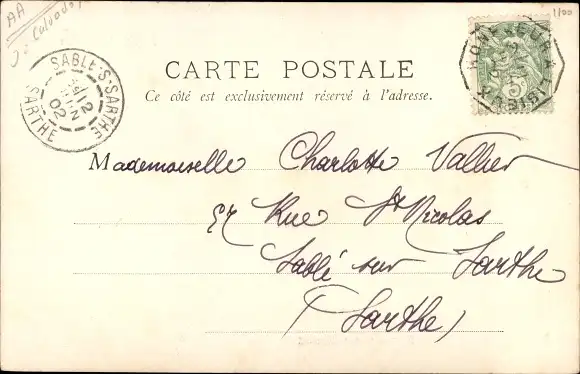 AA
Calvados
1100
SABLÉ-S-SARTHE
12
02
SARTHE
HONFLEUR A
LISIEUX
5
CARTE POSTALE
Ce côté est exclusivement réservé à l'adresse.
Mademoiselle Charlotte Vallier
57 Rue St Nicolas
Sablé sur Sarthe
(Sarthe)